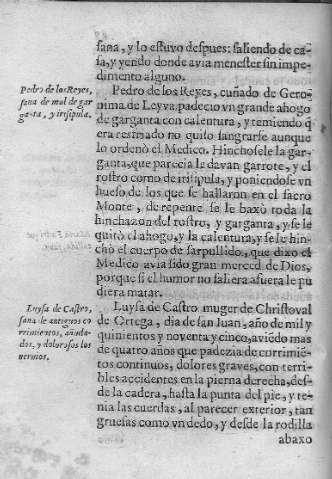 sana, y lo estuvo despues: saliendo de ca-
sa, y yendo donde avia menester sin impe-
dimento alguno.
Pedro de los Reyes,
sana de mal de gar
ganta, y irisipula.
Pedro de los Reyes, cuñado de Gero-
nima de Leyva, padecio vn grande ahogo
de garganta con calentura, y temiendo q̃
era resfriado no quiso sangrarse aunque
lo ordenò el Medico. Hinchosele la gar-
ganta, que parecia le davan garrote, y el
rostro como de irisipula, y poniendose vn
hueso de los que se hallaron en el sacro
Monte, de repente se le baxò toda la
hinchazon del rostro, y garganta, y se le
quitò el ahogo, y la calentura, y se le hin-
chò el cuerpo de sarpullido, que dixo el
Medico avia sido gran merced de Dios,
porque si el humor no saliera afuera le pu
diera matar.
Luysa de Castro,
sana de antiguos co
rrimientos, añuda-
dos, y dolorosos los
nervios.
Luysa de Castro muger de Christoval
de Ortega, dia de san Iuan, año de mil y
quinientos y noventa y cinco, aviẽdo mas
de quatro años que padezia de corrimiẽ-
tos continuos, dolores graves, con terri-
bles accidentes en la pierna derecha, des-
de la cadera, hasta la punta del pie, y te-
nia las cuerdas, al parecer exterior, tan
gruesas como vn dedo, y desde la rodilla
abaxo